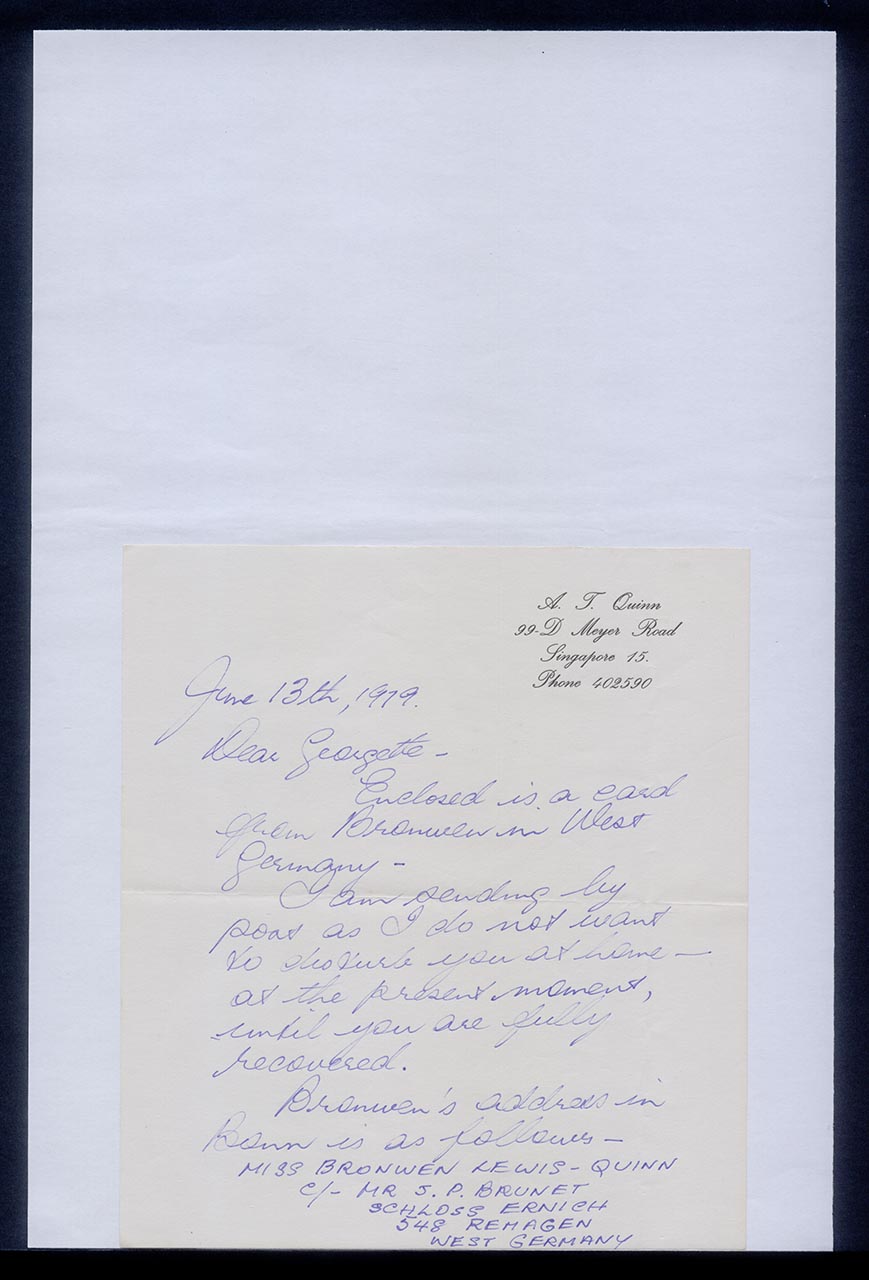 A. T. Quinn
99-D Meyer Road
Singapore 15.
Phone 402590
June 13th, 1979.
Dear Georgette -
Enclosed is a card
from Bronwen in West
Germany -
I am sending by
post as I do not want
to disturb you at home -
at the present moment,
until you are fully
recovered.
Bronwen's address in
Bonn is as follows -
MISS BRONWEN LEWIS-QUINN
C/- MR J. P. BRUNET
SCHLOSS ERNICH
548 REMAGEN
WEST GERMANY